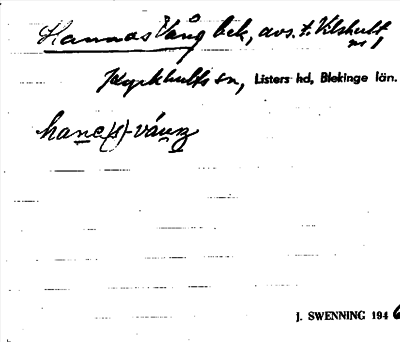 Hannas Vång bek, avs. t. Vilshult
nr 1
Kyrkhults sn, Listers hd, Blekinge län.
hane(s)-váng
J. SWENNING 1946